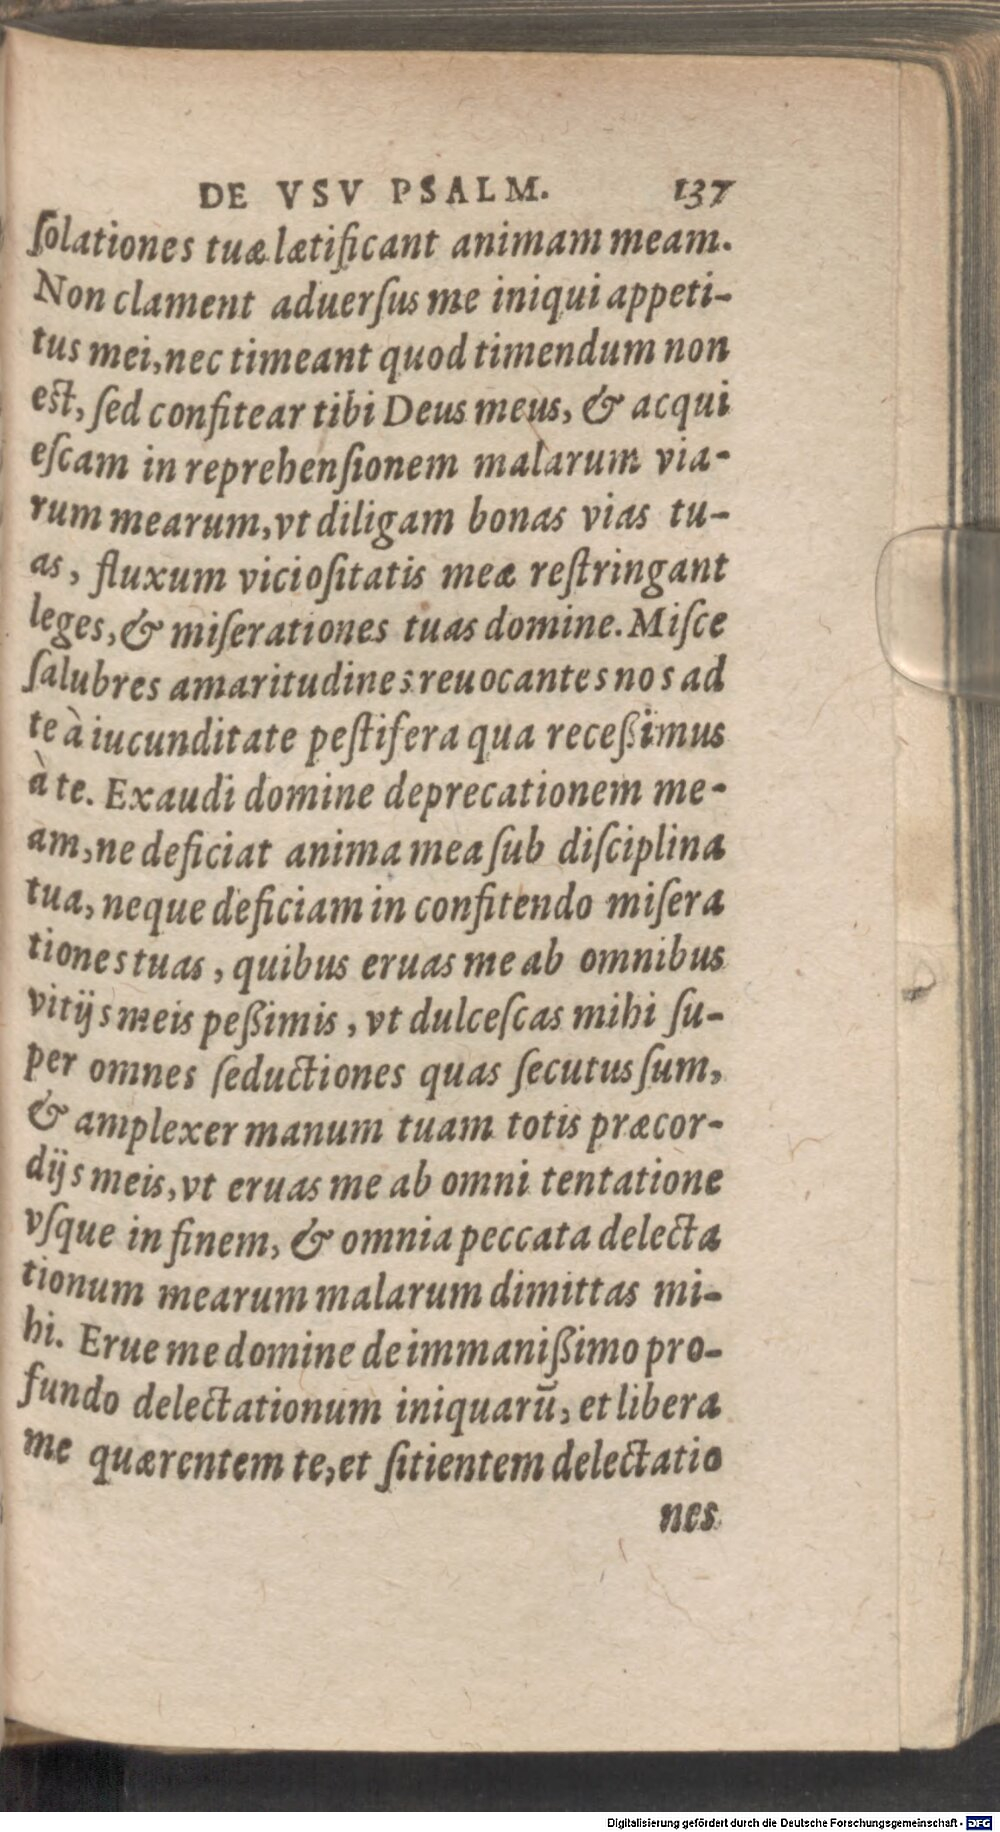 DE VSV PSALM. 137
ſolationes tuæ lætificant animam meam.
Non clament aduerſus me iniqui appeti-
tus mei, nec timeant quod timendum non
est, ſed confitear tibi Deus meus, & acqui
eſcam in reprehenſionem malarum via-
rum mearum, vt diligam bonas vias tu-
as, fluxum vicioſitatis meæ reſtringant
leges, & miſerationes tuas domine. Miſce
ſalubres amaritudines reuocantes nos ad
te à iucunditate peſtifera qua receßimus
à te. Exaudi domine deprecationem me-
am, ne deficiat anima mea ſub diſciplina
tua, neque deficiam in confitendo miſera
tiones tuas, quibus eruas me ab omnibus
vitijs meis peßimis, vt dulceſcas mihi ſu-
per omnes ſeductiones quas ſecutus ſum,
& amplexer manum tuam totis præcor-
dijs meis, vt eruas me ab omni tentatione
vſque in finem, & omnia peccata delecta
tionum mearum malarum dimittas mi-
hi. Erue me domine de immanißimo pro-
fundo delectationum iniquarū, et libera
me quærentem te, et ſitientem delectatio
nes
Digitalisierung gefördert durch die Deutsche Forschungsgemeinschaft - DFG